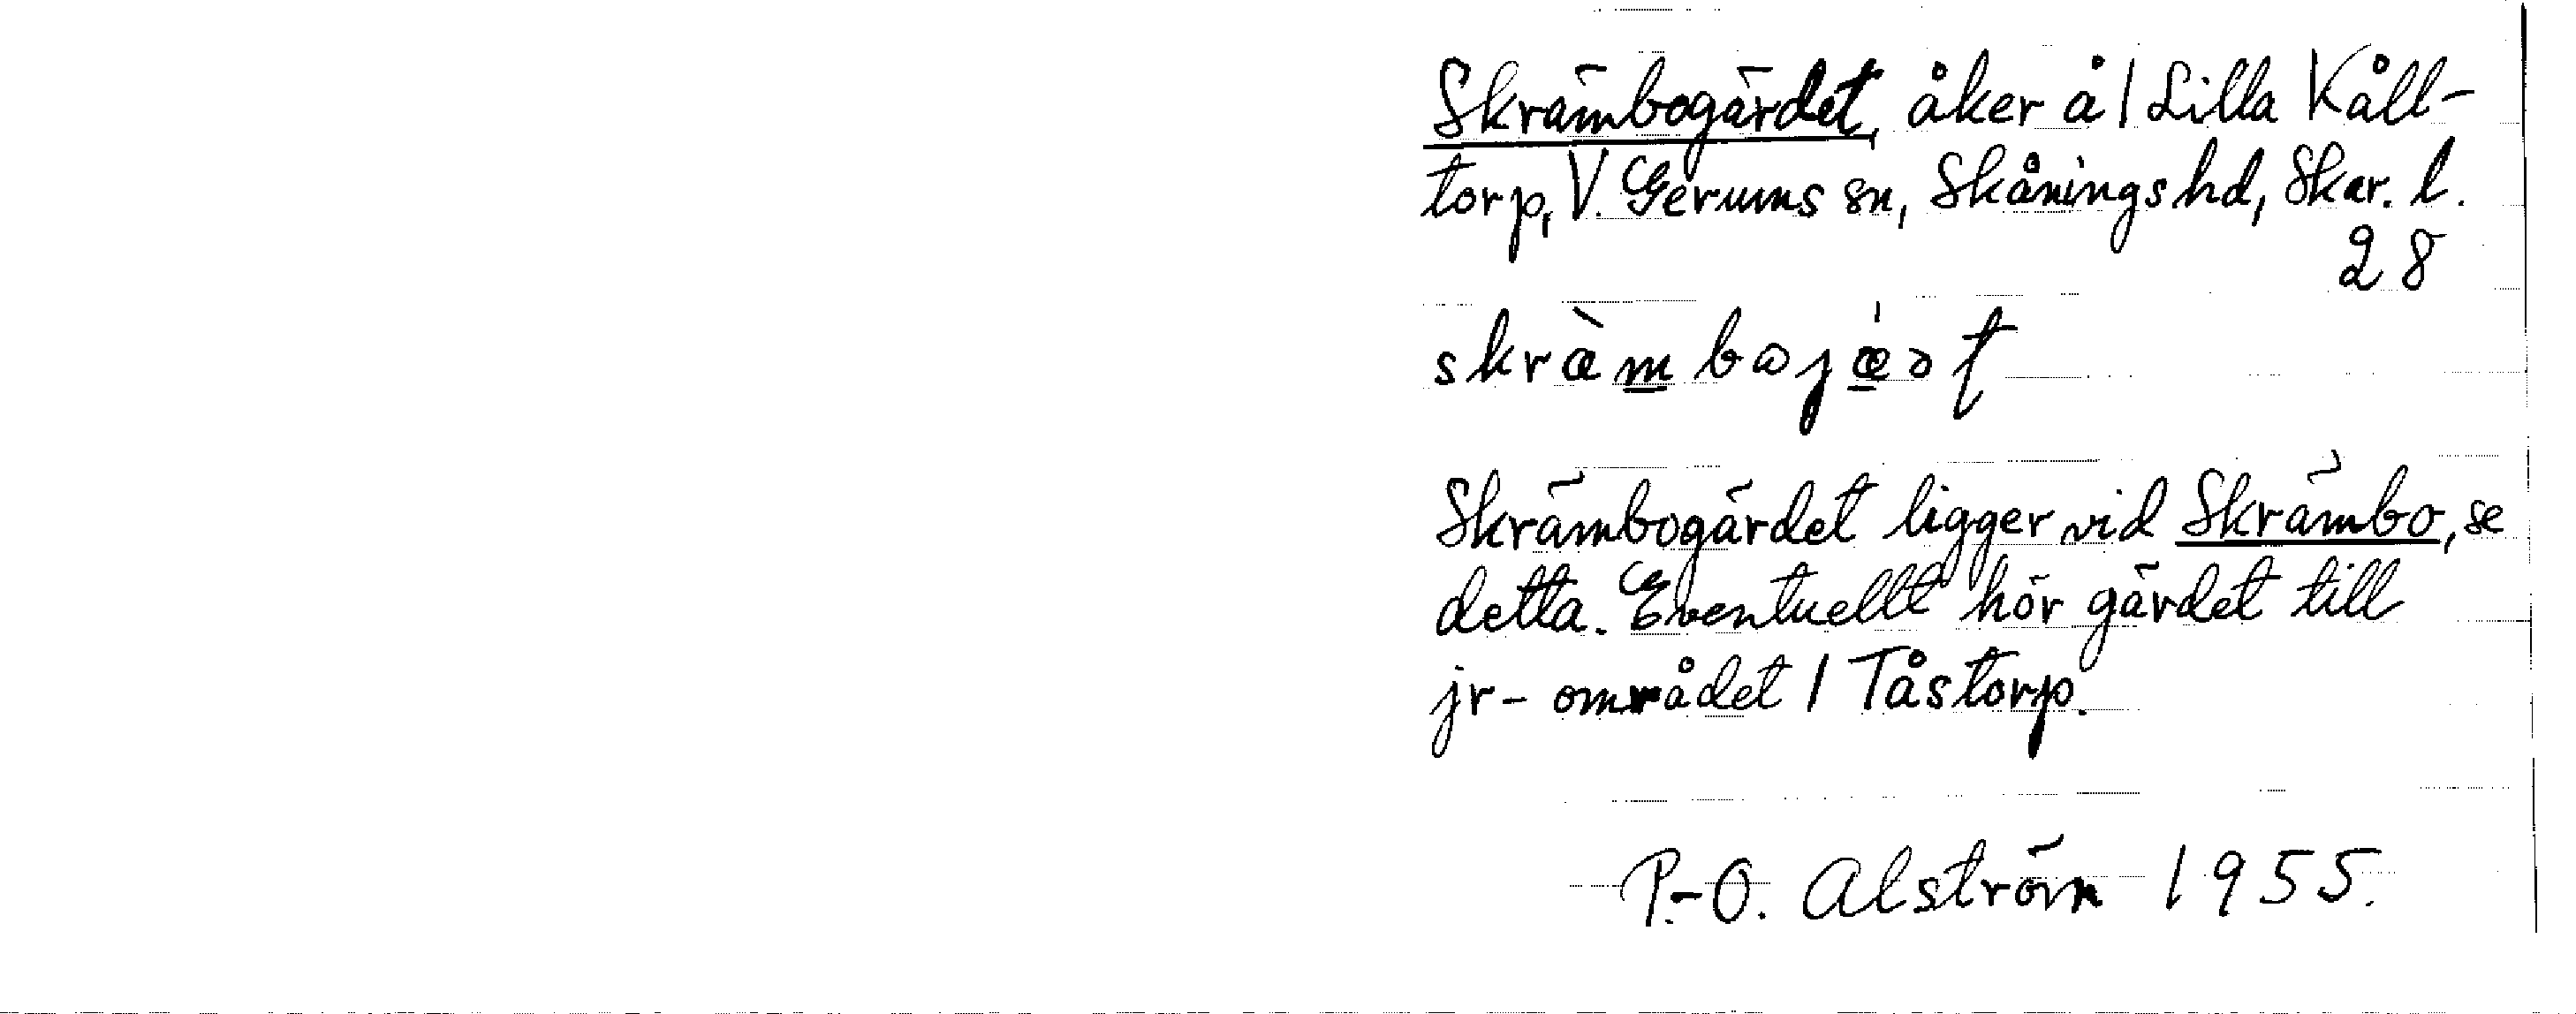 Skrämbogärdet, åker å 1 Lilla Kåll-
torp, V. Gerums sn, Skånings hd, Skar. l.
28
skræ̀mbojæ̀ət
Skrämbogärdet ligger vid Skrämbo, se
detta. Eventuellt hör gärdet till
jr-området 1 Tåstorp.
P.-O. Alström 1955.